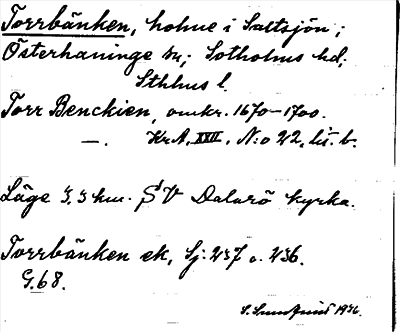 Torrbänken, holme i Saltsjön;
Österhaninge sn; Sotholms hd;
Sthlms l.
Torr Benckien, omkr. 1670-1700.
—. Kr.A, XXII, N:o 22, lit. b.
Läge 3,3 km. SV Dalarö kyrka.
Torrbänken ek, Sj: 237 o. 236.
G.68.
1936.